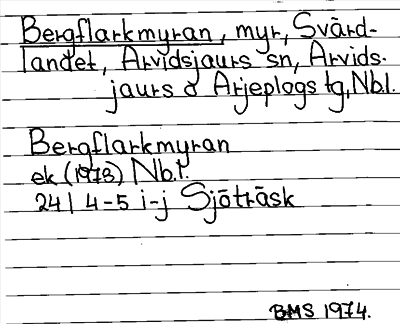 Bergflarkmyran, myr, Svärd-
landet, Arvidsjaurs sn, Arvids-
jaurs o Arjeplogs tg, Nb.l.
Bergflarkmyran
ek (1973) Nb.l.
24I 4-5 i-j Sjöträsk
BMS 1974.